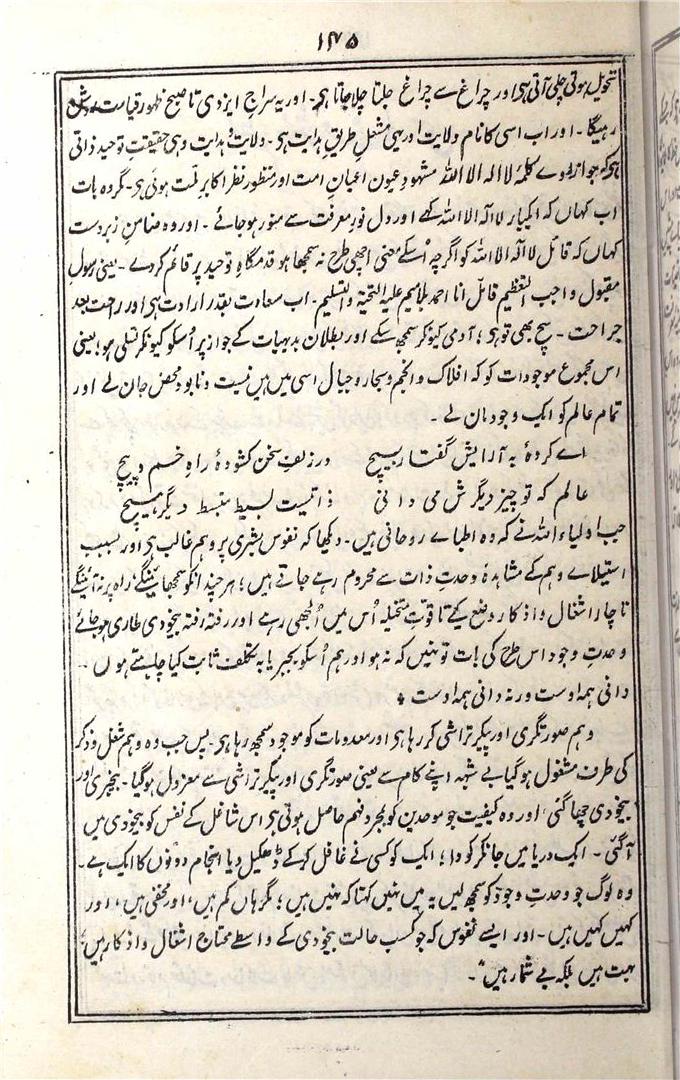 ۱۴۵
تحویل ہوتی چلی آتی ہی اور چراغ سے چراغ جلتا چلا جاتا ہی۔ اور یہ سراجِ ایزدی تا صبح ظہور قیامت روشن
رہیگا۔ اور اب اسی کا نام ولایت اور یہی مشعلِ طریقِ ہدایت ہی۔ ولایتُ ہدایت وہی حقیقتِ توحیدِ ذاتی
ہی کہ جو از روے کلمۂ لا الہ الا اللہ مشہودِ عیون اعیان امت اور منظور نظر اکابر ملت ہوئی ہی۔ مگر وہ بات
اب کہاں کہ ایکبار لا الہ الا اللہ کہے اور دل نورِ معرفت سے منور ہو جائے۔ اور وہ ضامنِ زبردست
کہاں کہ قائل لا الہ الا اللہ کو اگرچہ اُسکے معنی اچھی طرح نہ سمجھا ہو قدمگاہِ توحید پر قائم کردے۔ یعنی رسولِ
مقبول واجب التعظیم قائل انا احمد بلا میم علیہ التحیۃ والتسلیم۔ اب سعادت بقدر ارادت ہی اور راحت بعد
جراحت۔ سچ بھی تو ہی؛ آدمی کیونکر سمجھ سکے اور بطلان بدیہیات کے جواز پر اُسکو کیونکر تسلی ہو؛ یعنی
اس مجموع موجودات کو کہ افلاک وانجم و بحار و جبال اسی میں ہیں نیست و نابود محض جان لے اور
تمام عالم کو ایک وجود مان لے۔
اے کردہ بہ آرایش گفتار بسیچ در زلفِ سخن کشودہ راہِ خم و پیچ
عالم کہ تو چیز دیگرش می دانی ذاتیست بسیط منبسط دیگر ہیچ
جب اولیاء اللہ نے کہ وہ اطباے روحانی ہیں۔ دیکھا کہ نفوس بشری پر وہم غالب ہی اور بسبب
استیلاے وہم کے مشاہدۂ وحدتِ ذات سے محروم رہے جاتے ہیں؛ ہر چند انکو سمجھا یئنگے راہ پر نہ آئینگے
ناچار اشغال و اذکار وضع کیے تا قوّتِ متخیلہ اُس میں اُلجھی رہے اور رفتہ رفتہ بیخودی طاری ہو جائے
وحدتِ وجود اس طرح کی بات تو نہیں کہ نہ ہو اور ہم اُسکو بجبر یا بہ تکلف ثابت کیا چاہتے ہوں۔
دانی ہمہ اوست ور نہ دانی ہمہ اوست
وہم صورتگری اور پیکر تراشی کر رہا ہی اور معدومات کو موجود سمجھ رہا ہی۔ پس جب وہ وہم شغل و ذکر
کی طرف مشغول ہو گیا بے شبہہ اپنے کام سے یعنی صورتگری اور پیکر تراشی سے معزول ہو گیا۔ بیخبری اور
بیخودی چھا گئی اور وہ کیفیت جو موحدین کو بمجرد فہم حاصل ہوتی ہی اس شاغل کے نفس کو بیخودی میں
آگئی۔ ایک دریا میں جانکر کودا؛ ایک کو کسی نے غافل کر کے ڈھکیل دیا انجام دونوں کا ایک ہے۔
وہ لوگ جو وحدتِ وجود کو سمجھ لیں یہ میں نہیں کہتا کہ نہیں ہیں؛ مگر ہاں کم ہیں، اور مخفی ہیں، اور
کہیں کہیں ہیں۔ اور ایسے نفوس کہ جو کسب حالت بیخودی کے واسطے محتاج اشغال و اذکار ہیں؛
بہت ہیں بلکہ بے شمار ہیں۔